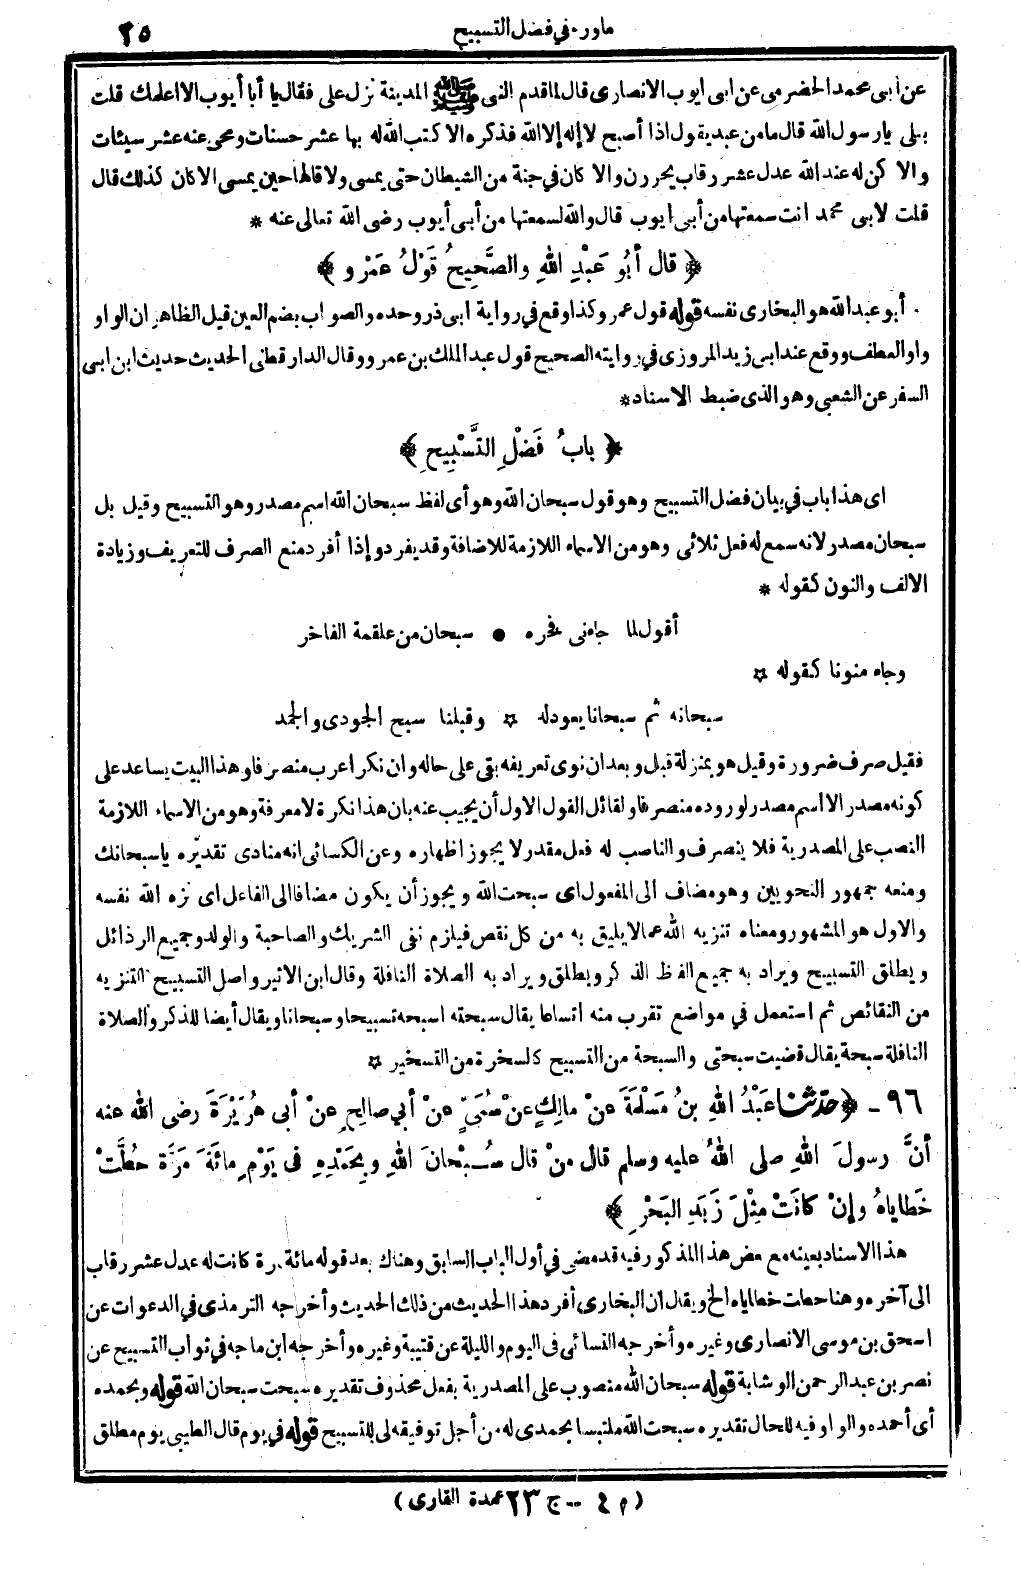 ماورد في فضل التسبيح ٢٥
عن أبي محمد الحضرمي عن ابي ايوب الانصاري قال لما قدم النبي ﷺ المدينة نزل علي فقال يا أبا أيوب الا اعلمك قلت
بلى يا رسول الله قال ما من عبد يقول اذا أصبح لا إله إلا الله فذكره الا كتب الله له بها عشر حسنات ومحى عنه عشر سيئات
والا كن له عند الله عدل عشر رقاب يحررن والا كان في جنة من الشيطان حتى يمسى ولا قالها حين يمسى الا كان كذلك قال
قلت لابى محمد انت سمعتها من أبي ايوب قال والله لسمعتها من أبي أيوب رضى الله تعالى عنه *
﴿ قال أبُو عَبْدِ اللهِ والصَّحِيحُ قَوْلُ عَمْرٍو ﴾
أبو عبد الله هو البخارى نفسه قوله قول عمرو كذا وقع في رواية ابى ذر وحده والصواب بضم العين قيل الظاهر ان الواو
واو العطف ووقع عند ابى زيد المروزى في روايته الصحيح قول عبد الملك بن عمرو وقال الدارقطنى الحديث حديث ابن ابى
السفر عن الشعبي وهو الذى ضبط الاسناد*
﴿ بابُ فَضْلِ التَّسْبِيحِ ﴾
اى هذا باب في بيان فضل التسبيح وهو قول سبحان الله وهو أى لفظ سبحان الله اسم مصدر وهو التسبيح وقيل بل
سبحان مصدر لانه سمع له فعل ثلاثى وهو من الاسماء اللازمة للاضافة وقد يفرد وإذا أفرد منع الصرف للتعريف وزيادة
الالف والنون كقوله *
أقول لما جاءنى فخره ● سبحان من علقمة الفاخر
وجاء منونا كقوله ☆
سبحانه ثم سبحانا يعود له ☆ وقبلنا سبح الجودى والجمد
فقيل صرف ضرورة وقيل هو بمنزلة قبل وبعد ان نوى تعريفه بقى على حاله وان نكر اعرب منصرفا وهذا البيت يساعد على
كونه مصدر الا اسم مصدر لوروده منصرفا ولقائل القول الاول أن يجيب عنه بان هذا نكرة لا معرفة وهو من الاسماء اللازمة
النصب على المصدرية فلا ينصرف والناصب له فعل مقدر لا يجوز اظهاره وعن الكسائى انه منادى تقديره يا سبحانك
ومنعه جمهور النحويين وهو مضاف الى المفعول اى سبحت الله ويجوز أن يكون مضافا الى الفاعل اى نزه الله نفسه
والاول هو المشهور ومعناه تنزيه الله عما لا يليق به من كل نقص فيلزم نفى الشريك والصاحبة والولد وجميع الرذائل
ويطلق التسبيح ويراد به جميع الفظ الذكر ويطلق ويراد به الصلاة النافلة وقال ابن الاثير واصل التسبيح التنزيه
من النقائص ثم استعمل في مواضع تقرب منه اتساعا يقال سبحته اسبحه تسبيحا وسبحانا ويقال أيضا للذكر والصلاة
النافلة سبحة يقال قضيت سبحتى والسبحة من التسبيح كالسخرة من التسخير ☆
٩٦ - ﴿ حَدَّثَنا عَبْدُ اللهِ بنُ مَسْلَمَةَ عنْ مالِكٍ عنْ سُمَيٍّ عنْ أبي صالِحٍ عنْ أبى هُرَيْرَةَ رضى الله عنه
أنَّ رسولَ اللهِ صلى اللهُ عليه وسلم قال منْ قال سُبْحانَ اللهِ وبِحَمْدِهِ فى يَوْمٍ مائَةَ مَرَّةٍ حُطَّتْ
خَطاياهُ وإنْ كانَتْ مِثْلَ زَبَدِ البَحْرِ ﴾
هذا الاسناد بعينه مع بعض هذا المذكور فيه قد مضى في أول الباب السابق وهناك بعد قوله مائة مرة كانت له عدل عشر رقاب
الى آخره وهنا حطت خطاياه الخ ويقال ان البخارى أفرد هذا الحديث من ذلك الحديث وأخرجه الترمذى في الدعوات عن
اسحق بن موسى الانصارى وغيره وأخرجه النسائى فى اليوم والليلة عن قتيبة وغيره وأخرجه ابن ماجه في ثواب التسبيح عن
نصر بن عبد الرحمن الوشاء قوله سبحان الله منصوب على المصدرية بفعل محذوف تقديره سبحت سبحان الله قوله وبحمده
أى أحمده والواو فيه للحال تقديره سبحت الله ملتبسا بحمدى له من أجل توفيقه لى للتسبيح قوله في يوم قال الطيبى يوم مطلق
(م ٤ -- ج ٢٣ عمدة القارى)